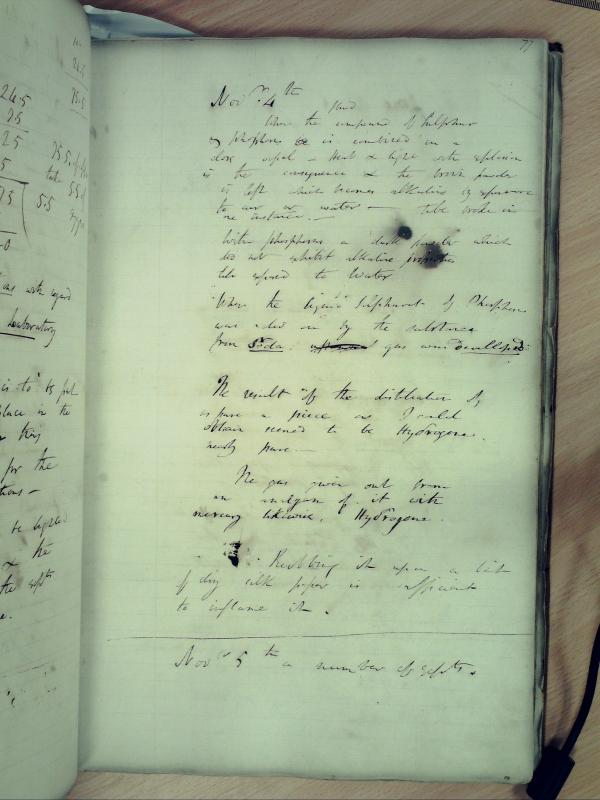 77
Novr. 4th
When the compound of Sulphur
& phosphorus is combined in a
close vessel - Heat & light with explosion
is the consequence & the brown powder
is left which becomes alkaline by exposure
to air or water - tube broke in
one instance. -
With phosphorus a dark powder which
did not exhibit alkaline properties
till exposed to Water
When the liquid Sulphuret of Phosphorus
was acted on by the substance
from Soda gas was
The result of the distillation of
as pure a piece as I could
obtain seemed to be Hydrogene
nearly pure. -
The gas given out from
an amalgam of it with
mercury likewise, Hydrogene.
Rubbing it upon a bit
of dry silk paper is sufficient
to inflame it.
Novr 5th a number of expts.
24.5
25
5.5
with regard
laboratory
is to be put
place in the
for the
be lighted
& the
the expts